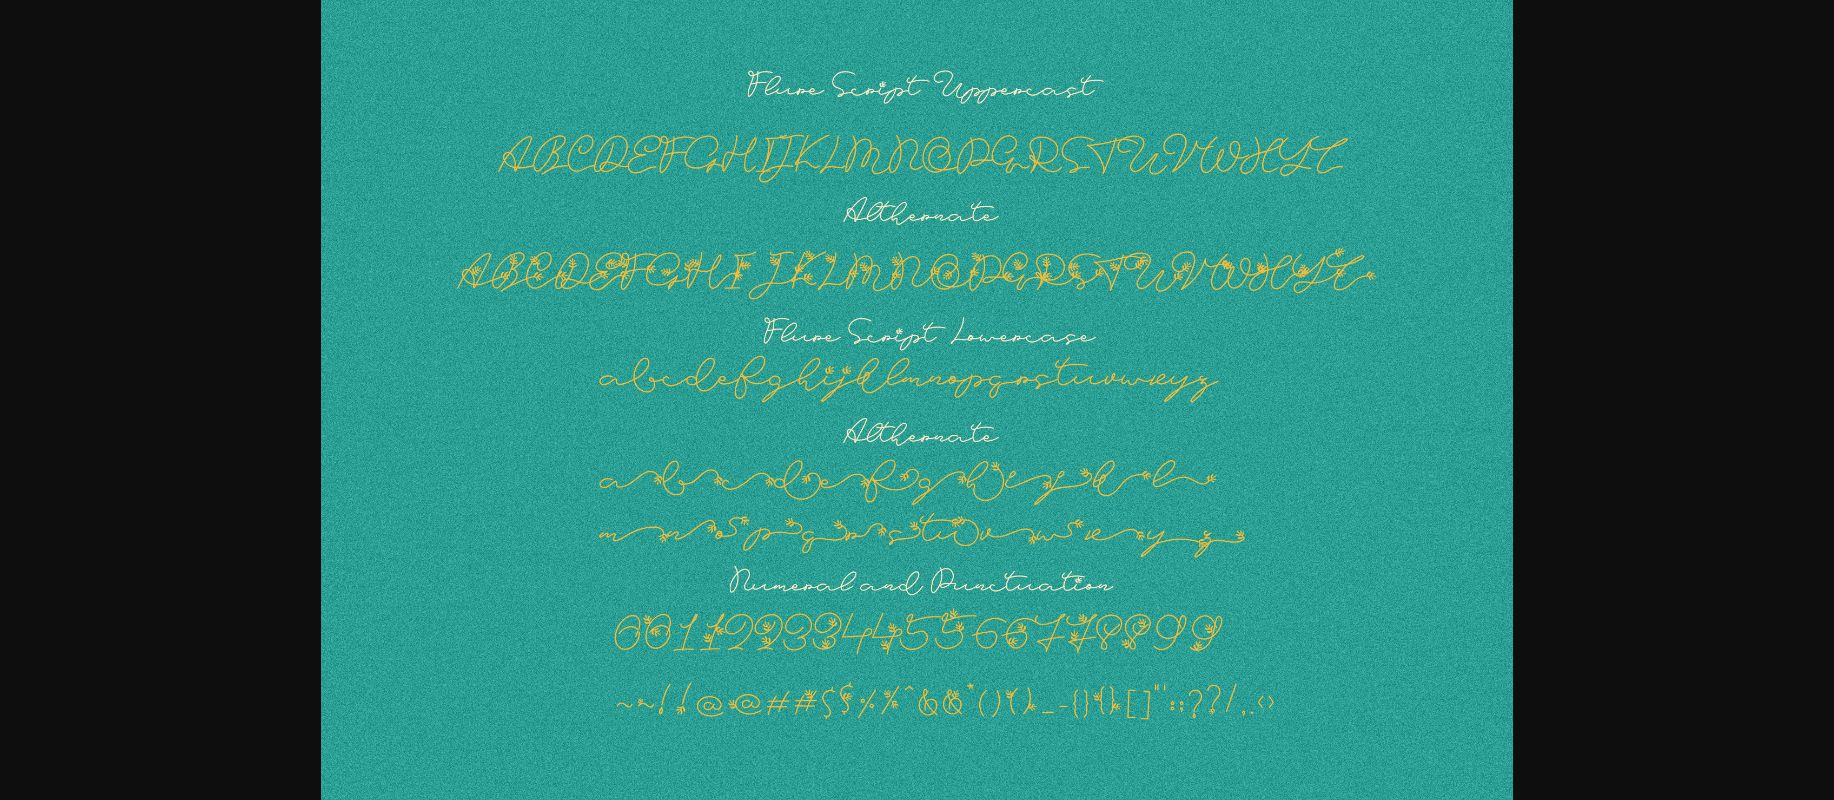 Flure Script Uppercast
ABCDEFGHIJKLMNOPQRSTUVWXYZ
Althernate
ABCDEFGHIJKLMNOPQRSTUVWXYZ
Flure Script Lowercase
abcdefghijklmnopqrstuvwxyz
Althernate
abcdefghijkl
mnopqrstuvwxyz
Numeral and Punctuation
00112233445566778899
~~!!@@##$$%%^&&*()()_-{}{}[]"':;??/,.<>